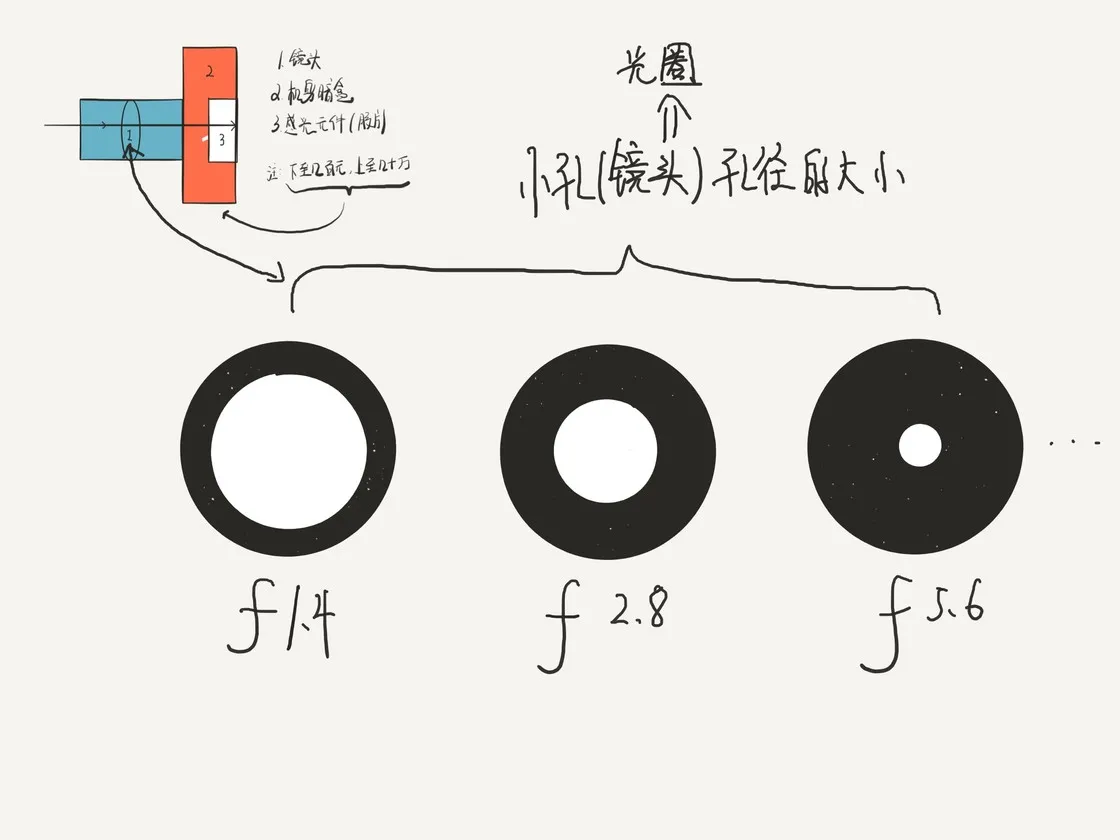 1
2
3
1.镜头
2.机身暗盒
3.感光元件(胶片)
注:下至几百元,上至几十万
光圈
小孔(镜头)孔径的大小
f1.4
f 2.8
f 5.6
...